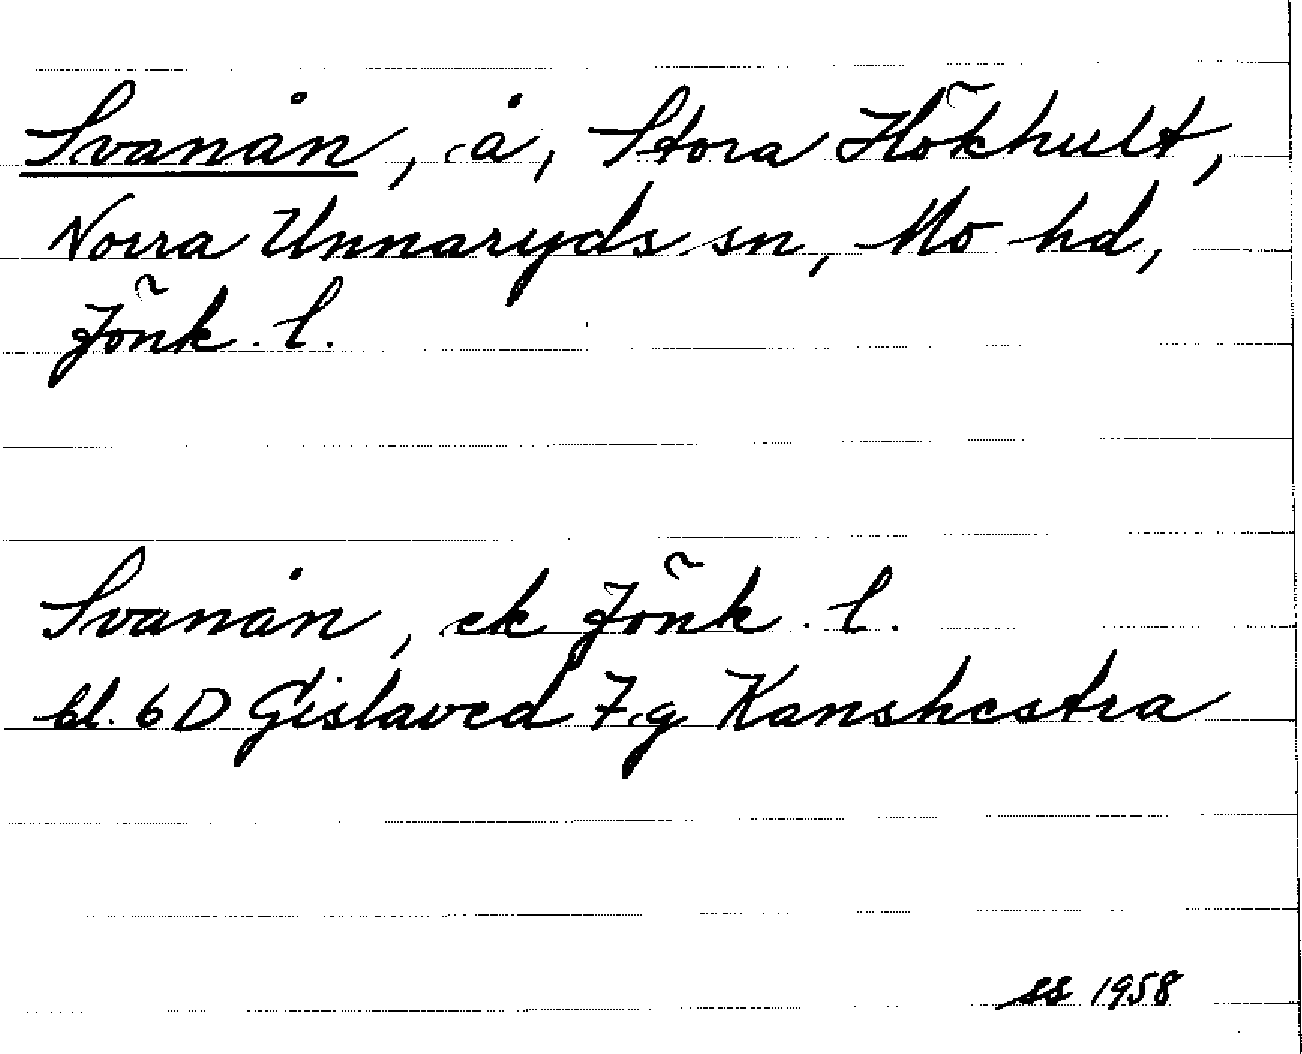 Svanån, å, Stora Hökhult,
Norra Unnaryds sn, Mo hd,
Jönk. l.
Svanån, ek Jönk. l.
bl. 6 D Gislaved 7 g Kanshestra
ss 1958